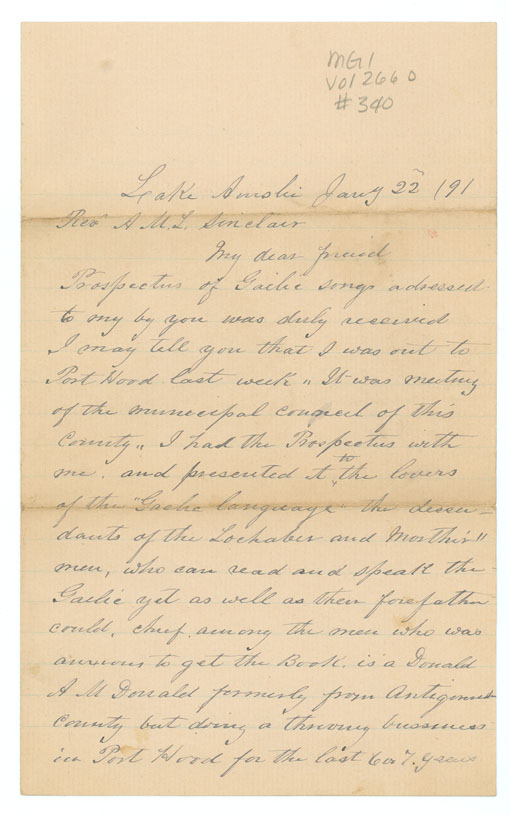 MG1
Vol 2660
#340
Lake Ainslie Jany 22nd /91
Revd A M.L. Sinclair
My dear friend
Prospectus of Gaelic songs adressed
to my by you was duly received
I may tell you that I was out to
Port Hood last week " It was meeting
of the municipal council of this
County " I had the Prospectus with
me. and presented it to the lovers
of the "Gaelic language" the decen-
dants of the Lochaber and
men, who can read and speak the
Gaelic yet as well as their forefather
could, chief among the men who was
anxious to get the Book. is a Donald
A McDonald formerly from Antigonish
county but doing a thriving bussiness
in Port Hood for the last 6 or 7. years